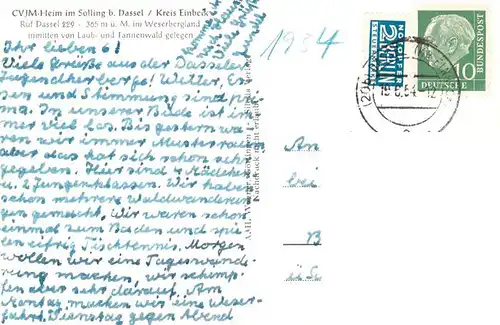 CVJM-Heim im Solling b. Dassel / Kreis Einbeck
Ruf Dassel 229 · 365 m ü. M. im Weserbergland
inmitten von Laub- und Tannenwald gelegen
Ihr lieben 6!
Viele Grüße aus der Dasseler
Jugendherberge! Wetter, Es-
sen und Stimmung sind pri-
ma. In unserer Bude ist im-
mer viel los. Bis gestern wa-
ren wir immer Musterraum
aber das hat sich schon sehr
gegeben. Hier sind 4 Mädchen
u. 2 Jungenklassen. Wir haben
schon mehrere Waldwanderun-
gen gemacht. Wir waren schon
einmal zum Baden und spie-
len eifrig Tischtennis. Morgen
wollen wir eine Tageswande-
rung machen, wir schimp-
fen aber sehr darauf. Am
Montag machen wir eine Weser-
fahrt. Dienstag gegen Abend
1954
NOTOPFER
2 BERLIN
STEUERMARKE
DEUTSCHE
BUNDESPOST
10
An
bei
B